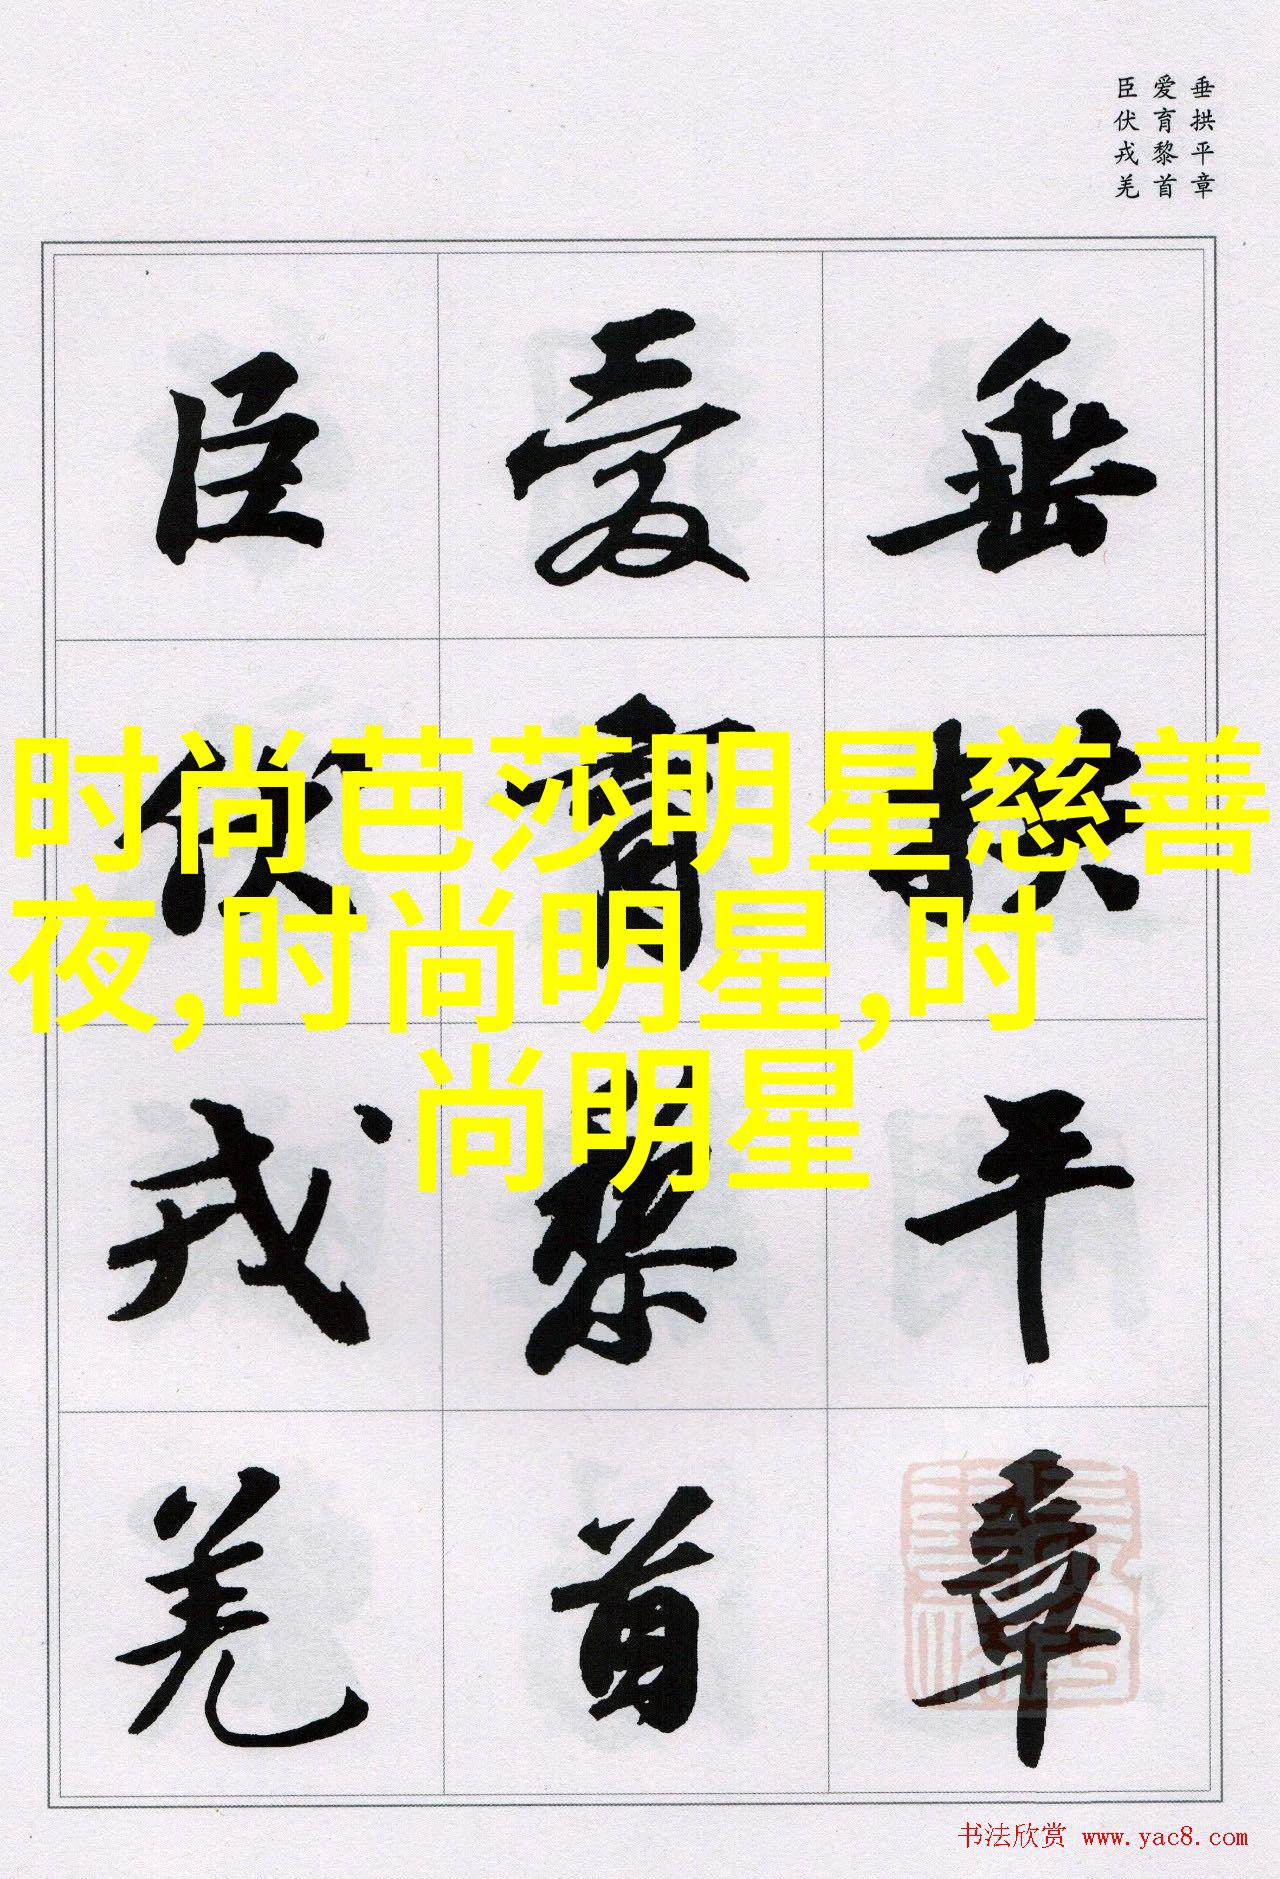 垂拱平章
爱育黎首
臣伏戎羌
垂拱平章
爱育黎首
臣伏戎羌
时尚芭莎明星慈善
夜,时尚明星,时
尚明星
书法欣赏 www.yac8.com